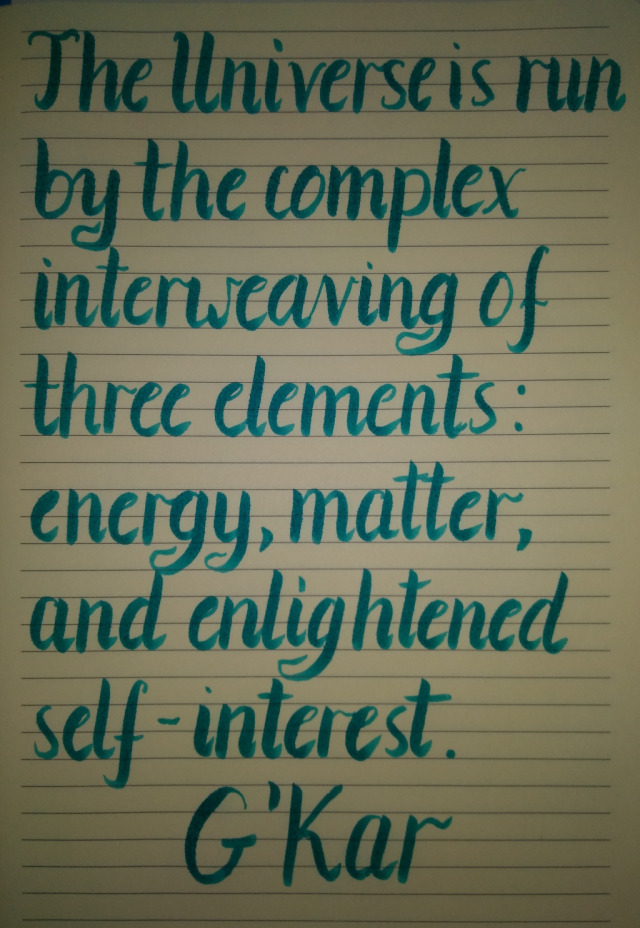 The Universe is run
by the complex
interweaving of
three elements:
energy, matter,
and enlightened
self-interest.
G'Kar